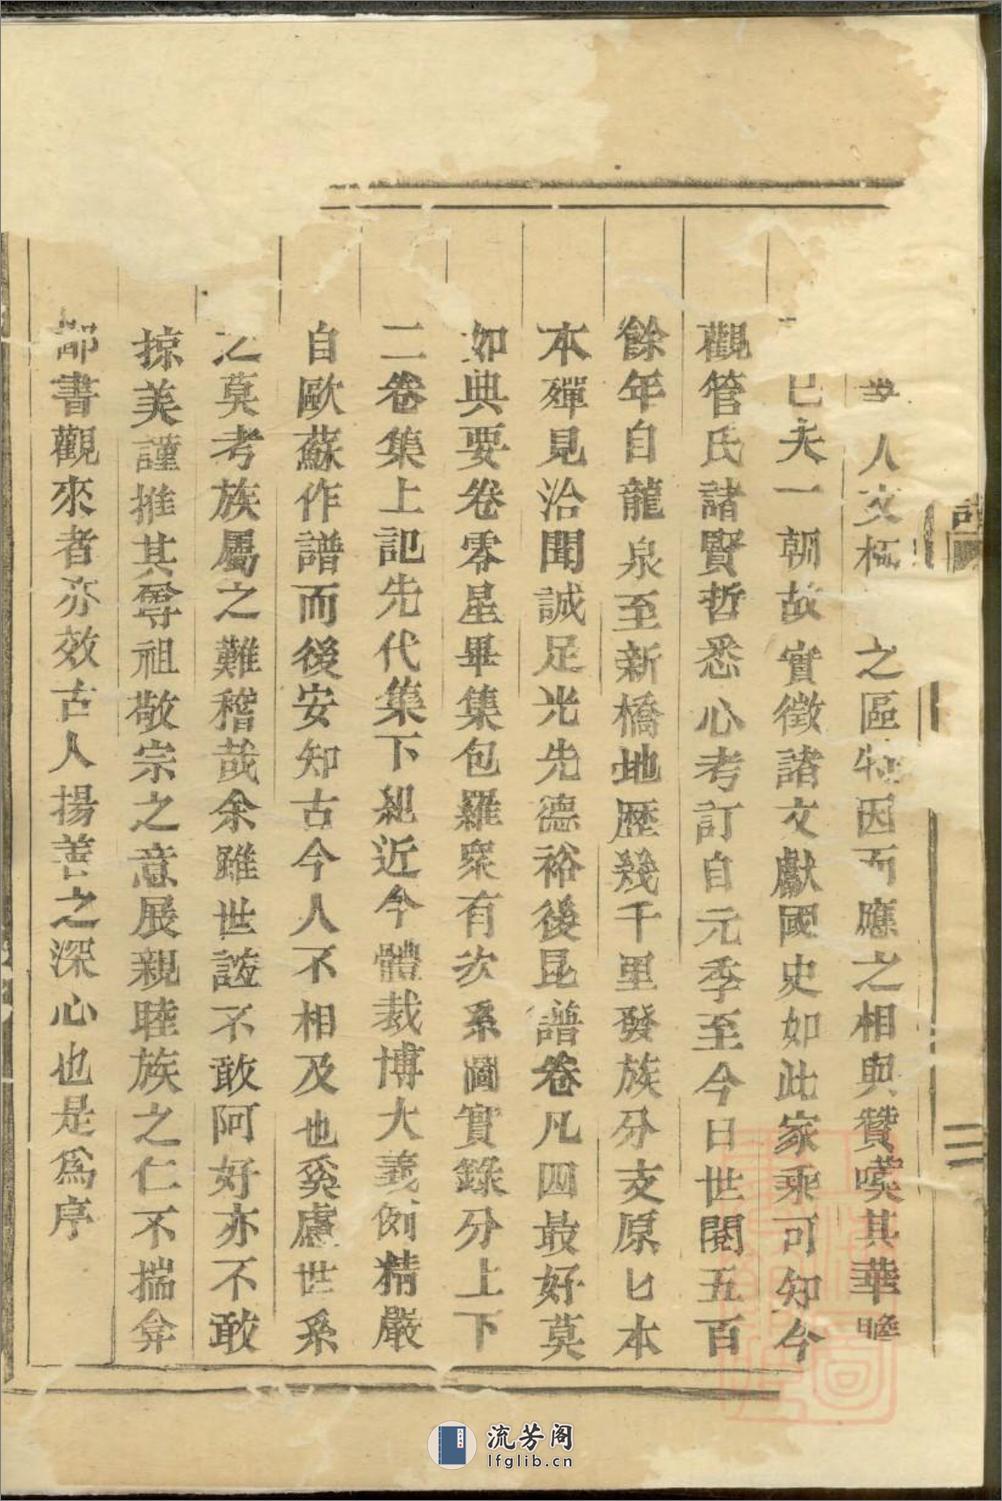 人文 之區 因而應之相與贊嘆其華
已久一朝故實徵諸文獻國史如此家乘可知今
觀管氏諸賢哲悉心考訂自元季至今日世閱五百
餘年自龍泉至新橋地歷幾千里發族分支原 本
本殫見洽聞誠足光先德裕後昆譜卷凡四最好莫
如典要卷零星畢集包羅眾有次系圖實錄分上下
二卷集上記先代集下紀近今體裁博大義例精嚴
自歐蘇作譜而後安知古今人不相及也奚慮世系
之莫考族屬之難稽哉余雖世誼不敢阿好亦不敢
掠美謹推其尊祖敬宗之意展親睦族之仁不揣弇
鄙書觀來者亦效古人揚善之深心也是為序
二
流芳阁
lfglib.cn